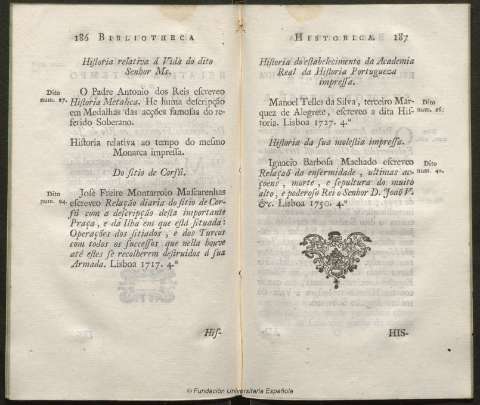 186 BIBLIOTHECA
Historia relativa á Vida do dito
Senhor Ms.
Dito
num. 27.
O Padre Antonio dos Reis escreveo
Historia Metalica. He huma descripção
em Medalhas das acções famosas do re-
ferido Soberano.
Historia relativa ao tempo do mesmo
Monarca impressa.
Do sitio de Corfú.
Dito
num. 94.
José Freire Montarroio Mascarenhas
escreveo Relação diaria do sitio de Cor-
fú com a descripção desta importante
Praça, e da Ilha em que está situada:
Operações dos sitiados, e dos Turcos
com todos os successos que nella houve
até estes se recolherem destruidos á sua
Armada. Lisboa 1717. 4.º
His-
HISTORICA. 187
Historia do estabelecimento da Academia
Real da Historia Portugueza
impressa.
Manoel Telles da Silva, terceiro Mar-
quez de Alegrete, escreveo a dita His-
toria. Lisboa 1727. 4.º
Dito
num.
Historia da sua molestia impressa.
Ignacio Barbosa Machado escreveo
Relação da enfermidade, ultimas ac-
çoens, morte, e sepultura do muito
alto, e poderoso Rei o Senhor D. João V.
&c. Lisboa 1750. 4.º
Dito
num.
HIS-
© Fundación Universitaria Española